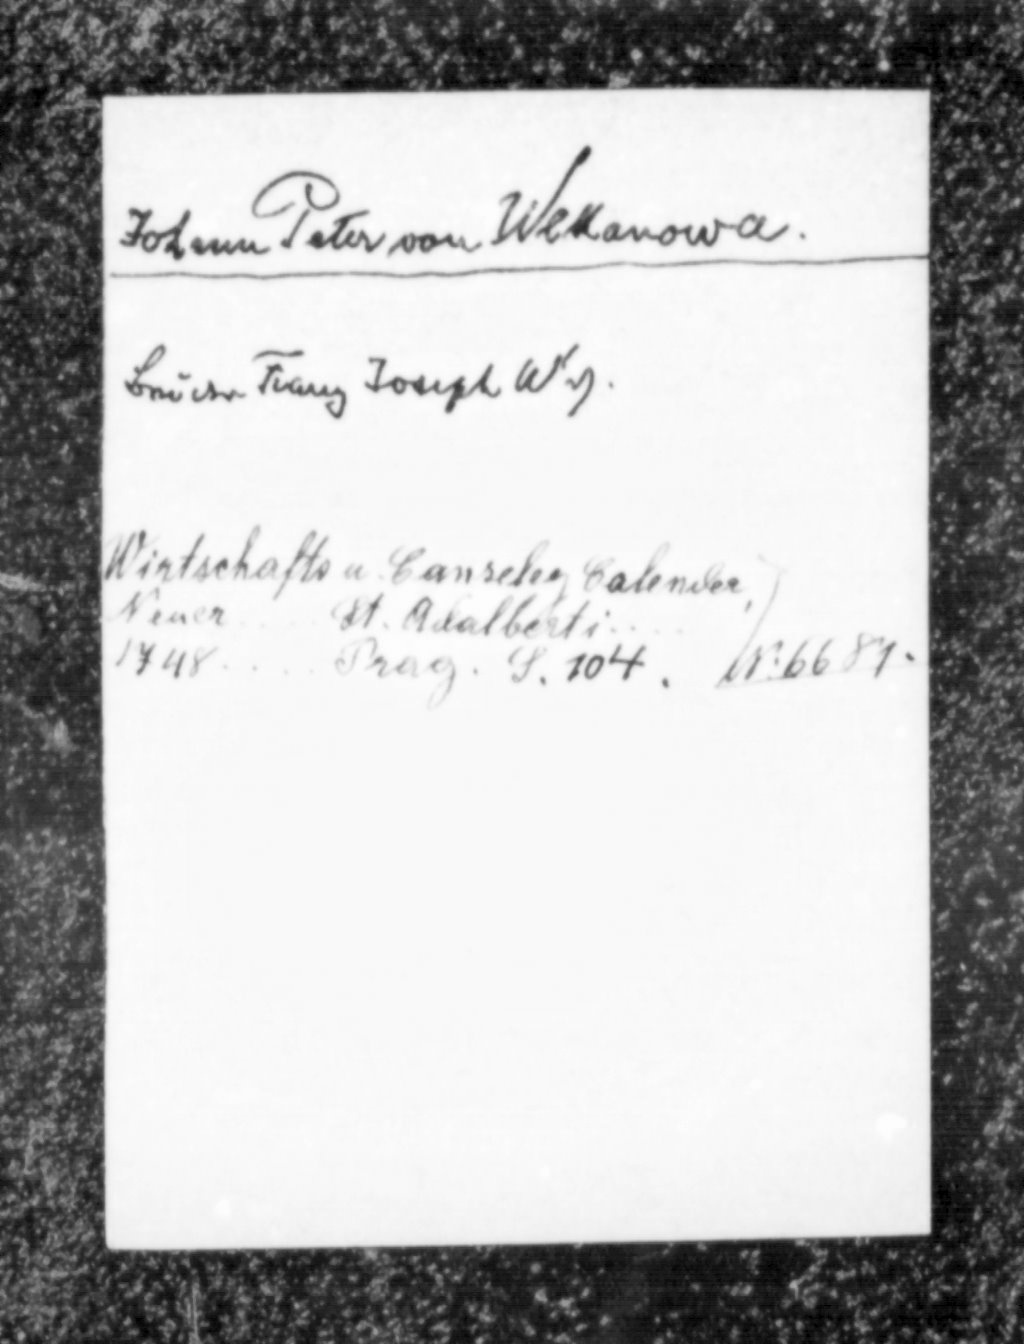 Johann Peter von Wekanowa.
Bruder Franz Joseph W v.
Wirtschafts u. Canzeley Calender,
Neuer .... St. Adalberti ....
1748 .... Prag. S. 104. N: 6687.